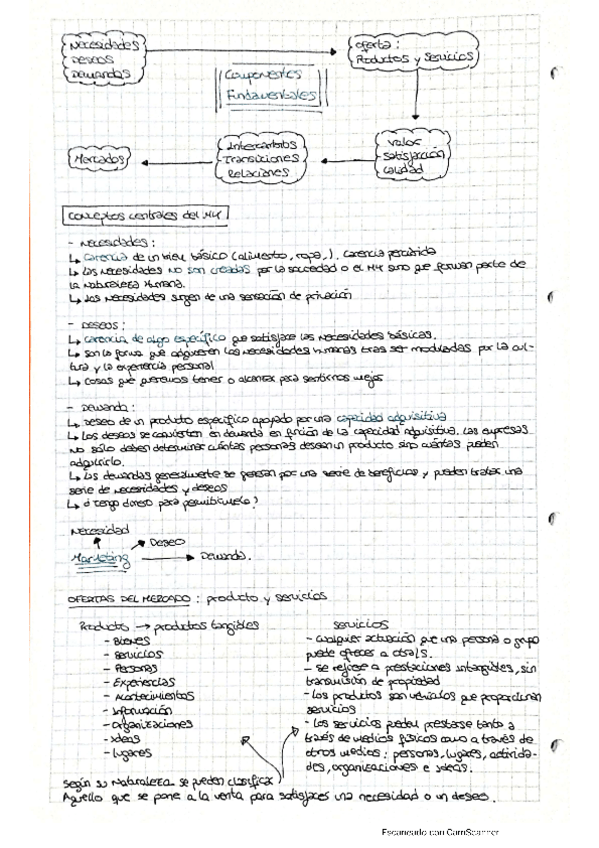 Necesidades
Deseos
Demandas
oferta:
Productos y servicios
Componentes
Fundamentales
Mercados
Intercambios
Transiciones
Relaciones
Valor
Satisfacción
Calidad
Conceptos centrales del MK
- Necesidades:
↳ Carencia de un bien básico (alimento, ropa,). Carencia percibida
↳ Las necesidades no son creadas por la sociedad o el MK sino que forman parte de
la naturaleza humana.
↳ Las necesidades surgen de una sensación de privación
- Deseos:
↳ Carencia de algo específico que satisface las necesidades básicas.
↳ Son la forma que adquieren las necesidades humanas tras ser moduladas por la cul-
tura y la experiencia personal
↳ Cosas que queremos tener o alcanzar para sentirnos mejor
- Demanda:
↳ Deseo de un producto específico apoyado por una capacidad adquisitiva
↳ Los deseos se convierten en demanda en función de la capacidad adquisitiva. Las empresas
no sólo deben determinar cuántas personas desean un producto sino cuántas pueden
adquirirlo.
↳ Las demandas generalmente se piensan por una serie de beneficios y pueden tratar una
serie de necesidades y deseos
↳ ¿tengo dinero para permitirmelo?
Necesidad
Deseo
Marketing → Demanda.
OFERTAS DEL MERCADO: producto y servicios
Producto → productos tangibles
- Bienes
- Servicios
- Personas
- Experiencias
- Acontecimientos
- Información
- Organizaciones
- Ideas
- Lugares
Servicios
- Cualquier actuación que una persona o grupo
puede ofrecer a otra/s.
- Se refiere a prestaciones intangibles, sin
transmisión de propiedad
- Los productos son vehículos que proporcionan
servicios
- Los servicios pueden prestarse tanto a
través de medios físicos como a través de
otros medios: personas, lugares, activida-
des, organizaciones e ideas.
Según su naturaleza se pueden clasificar
Aquello que se pone a la venta para satisfacer una necesidad o un deseo.
Escaneado con CamScanner